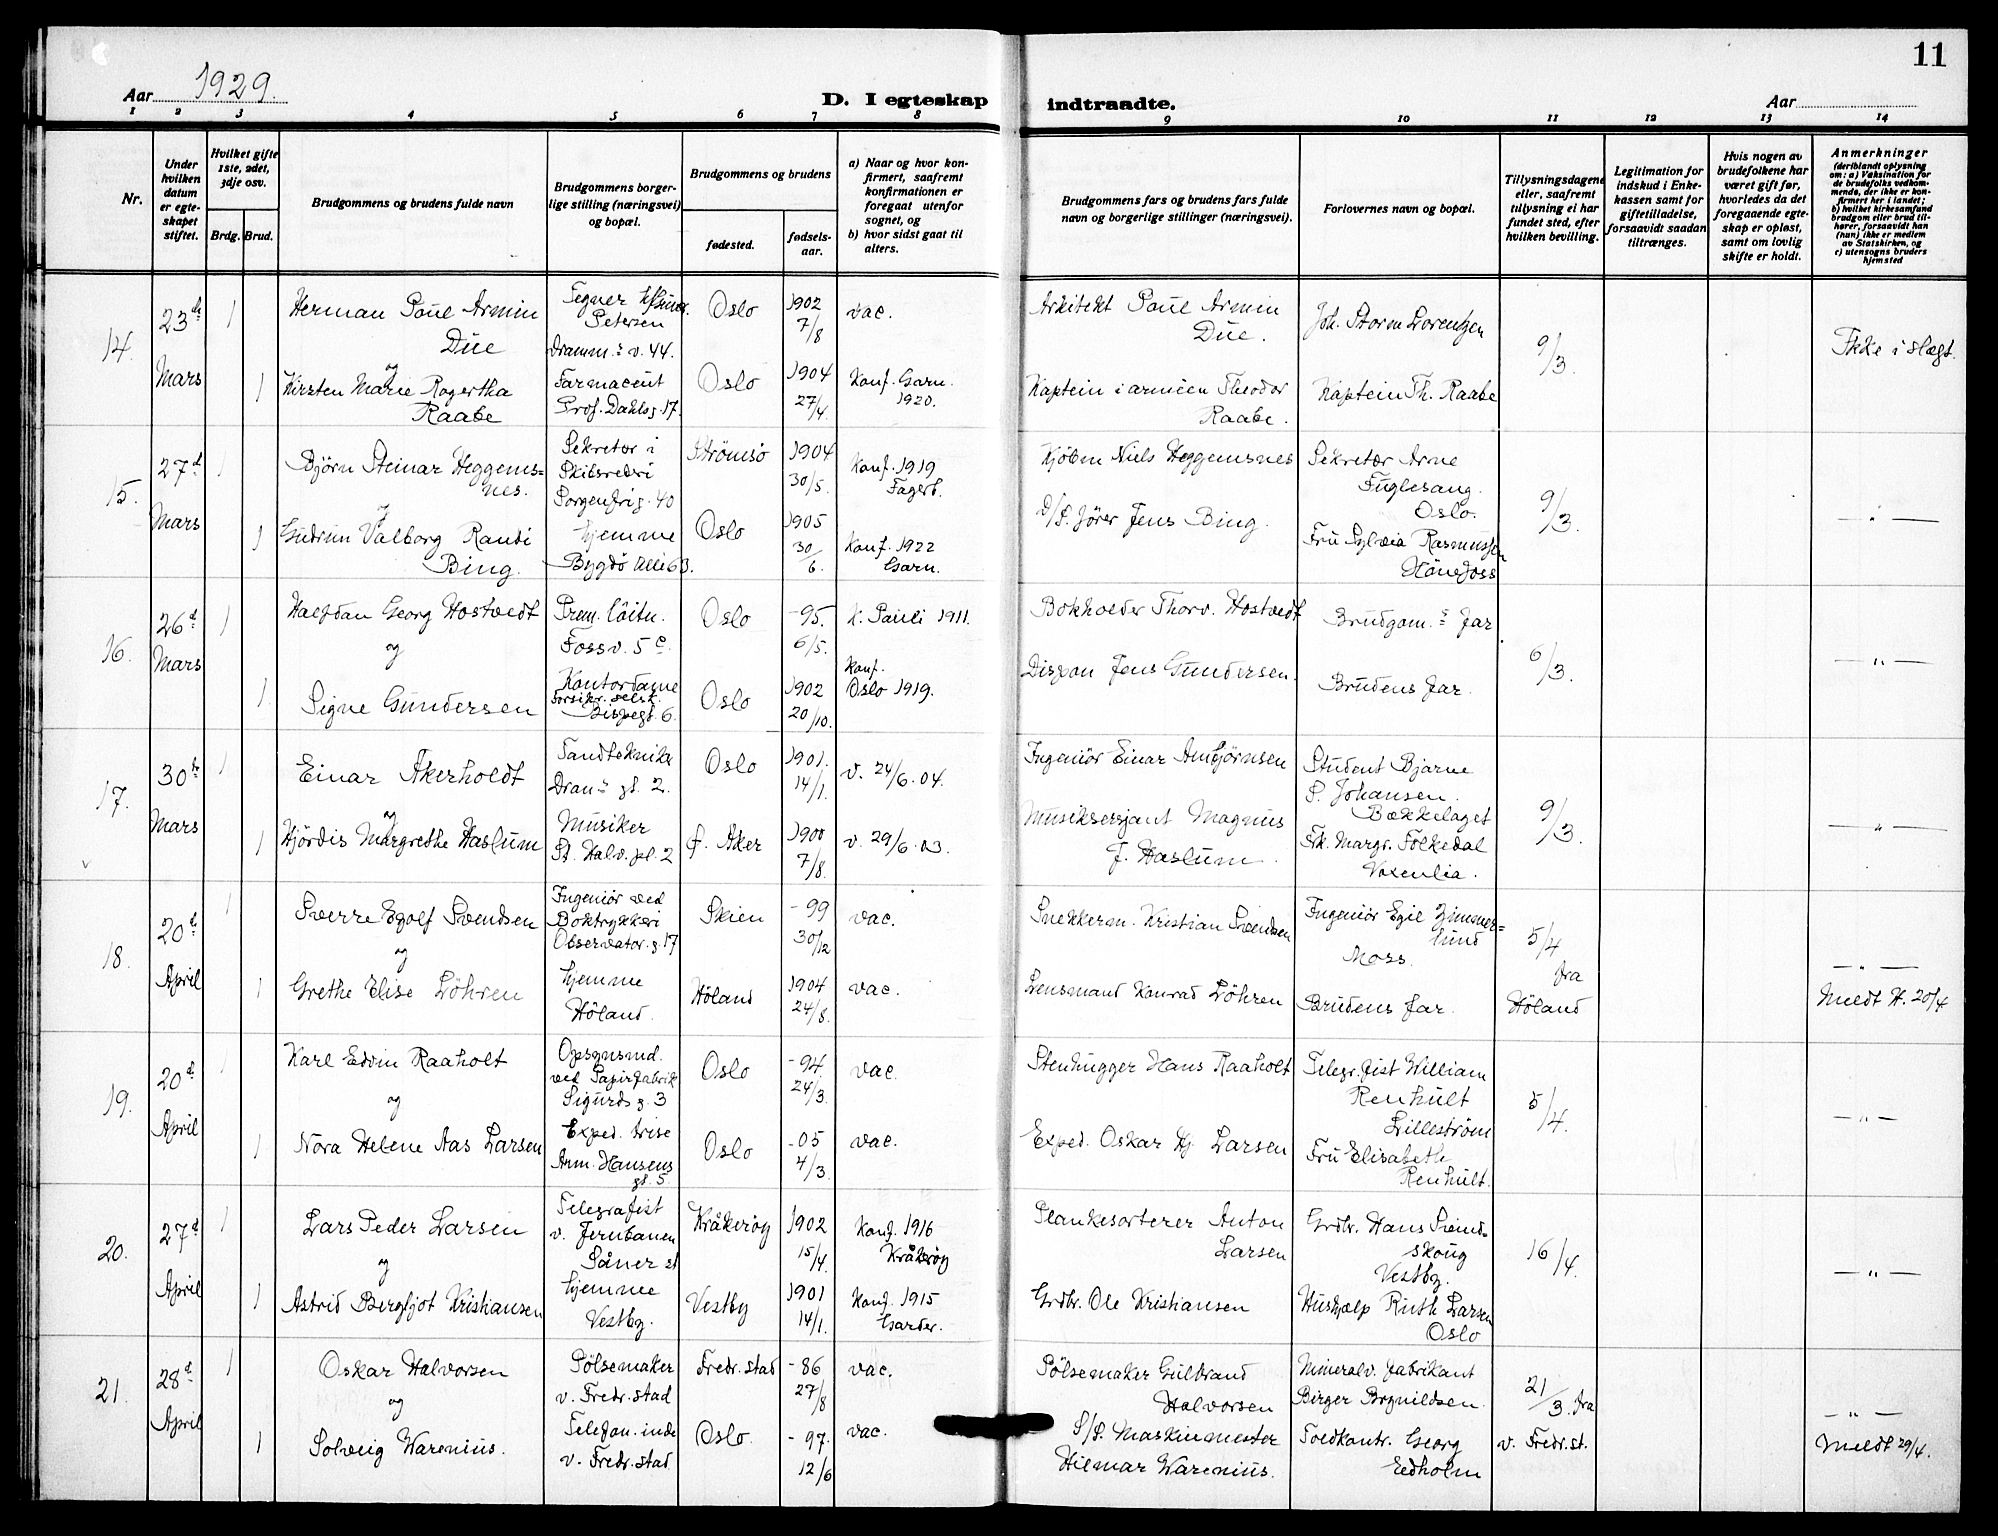 11
Aar 1929.
D. I egteskap indtraadte.
Aar
1 2 3 4 5 6 7 8 9 10 11 12 13 14
Nr.
Under hvilken datum er egteskapet stiftet.
Hvilket gifte 1ste, 2det, 3dje osv.
Brdg. Brud.
Brudgommens og brudens fulde navn
Brudgommens borgerlige stilling (næringsvei) og bopæl.
Brudgommens og brudens
fødested.
fødselsaar.
a) Naar og hvor konfirmert, saafremt konfirmationen er foregaat utenfor sognet, og
b) hvor sidst gaat til alters.
Brudgommens fars og brudens fars fulde navn og borgerlige stillinger (næringsvei).
Forlovernes navn og bopæl.
Tillysningsdagene eller, saafremt tillysning ei har fundet sted, efter hvilken bevilling.
Legitimation for indskud i Enkekassen samt for giftetilladelse, forsaavidt saadan tiltrænges.
Hvis nogen av brudefolkene har været gift før, hvorledes da det foregaaende egteskap er opløst, samt om lovlig skifte er holdt.
Anmerkninger
(deriblandt oplysning om: a) Vaksination for de brudefolks vedkommende, der ikke er konfirmert her i landet; b) hvilket kirkesamfund brudgom eller brud tilhører, forsaavidt han (hun) ikke er medlem av Statskirken, og c) utensogns bruders hjemsted
14.
23de Mars
1
Herman Poul Armin Due
og
Tegner
Petersen
Dramm.s v. 44.
Oslo
1902
7/8
vac.
Arkitekt Poul Armin Due.
Joh. Storm Lorentzen
9/3.
Ikke i slegt.
1
Kirsten Marie Ragertha Raabe
Farmaceut
Prof. Dahls g. 17.
Oslo
1904
27/4.
Konf. Garn. 1920.
Kaptein i armeen Theodor Raabe.
Kaptein Th. Raabe
15.
27d Mars
1
Björn Steinar Heggemsnes.
og
Sekretær i
Skibsrederi
Sorgenfrig. 40
Strömsö
1904
30/5.
Konf. 1919
Fagerb.
Kjöbm Niels Heggemsnes
Sekretær Arne
Fuglesang.
Oslo.
9/3.
— " —
1
Gudrun Valborg Randi Bing.
hjemme
Bygdö Alle 63.
Oslo
1905
30/6.
Konf. 1922
Garn.
D/S. förer Jens Bing.
Fru Sylvia Rasmussen
Hönefoss
16.
26d Mars
1
Halfdan Georg Hostvedt
og
Prem. löitn.
Fossv. 5 c.
Oslo
-95.
6/5.
K. Pauli 1911.
Bokholder Thorv. Hostvedt
Brudgom.s far
6/3.
— " —
1.
Signe Gundersen
Kontordame
forsikr. selsk.
Bispegt. 6.
Oslo
1902
20/10.
Konf.
Oslo 1919.
Dispon Jens Gundersen.
Brudens far.
17.
30te Mars
1
Einar Åkerholdt
og
Tandtekniker
Dram.s gt. 2.
Oslo
1901.
14/1.
v. 24/6. 04.
Ingeniör Einar Ambjörnsen
Student Bjarne
S. Johansen.
Bækkelaget
9/3.
— " —
1
Hjördis Margrethe Haslum
Musiker
St. Halv. pl. 2
f. Aker
1900
7/8.
v. 29/6. 03.
Musiksersjant Magnus F. Haslum.
Frk. Margr. Folkedal
Voxenlia.
18.
20d April
1
Sverre Egolf Svendsen
og
Ingeniör ved
Boktrykkeri
Observator. g. 17
Skien
-99
30/12
vac.
Snekkerm. Kristian Svendsen
Ingeniör Egil Zimmerlund
Moss.
5/4
fra
Höland
— " —
Meldt H. 20/4
1
Grethe Elise Löhren
hjemme
Höland.
Höland
1904
24/8.
vac.
Lensmand Konrad Löhren
Brudens far.
19.
20d April
1
Karl Edvin Raaholt
og
Opsynsmd.
ved Papirfabrik
Sigurds g. 3
Oslo
-94.
24/3.
vac.
Stenhugger Hans Raaholt
Telegrafist William
Renhult
Lilleström
5/4.
— " —
1
Nora Helene Aas Larsen
Exped. trise
Arm. Hansens
gt. 5.
Oslo
-05
4/3
vac.
Exped. Oskar Hj Larsen
Fru Elisabeth
Renhult.
20.
27d April
1
Lars Peder Larsen
og
Telegrafist
v. Jernbanen
Såner st
Kråkeröy
1902
15/4.
Konf. 1916
Kråkeröy
Plankesorterer Anton Larsen
Grdbr. Hans Svindskoug
Vestby.
16/4.
— " —
1
Astrid Bergljot Kristiansen
hjemme
Vestby.
Vestby
1901
14/1.
Konf. 1915
Garder.
Grdbr. Ole Kristiansen
Hushjælp Ruth Larsen
Oslo
21.
28d April
1
Oskar Halvorsen
og
Pölsemaker
v. Fredr.stad
Fredr.stad
-86
27/8
vac.
Pölsemaker Gulbrand Halvorsen
Mineralv. fabrikant
Birger Brynildsen.
21/3. fra
v. Fredr.st.
— " —
Meldt 29/4.
1
Solveig Warenius.
Telefon. inde
v. Fredr.stad
Oslo.
-97.
12/6
vac.
S/S. Maskinmester
Hilmar Warenius.
Toldkontr. Georg
Edholm